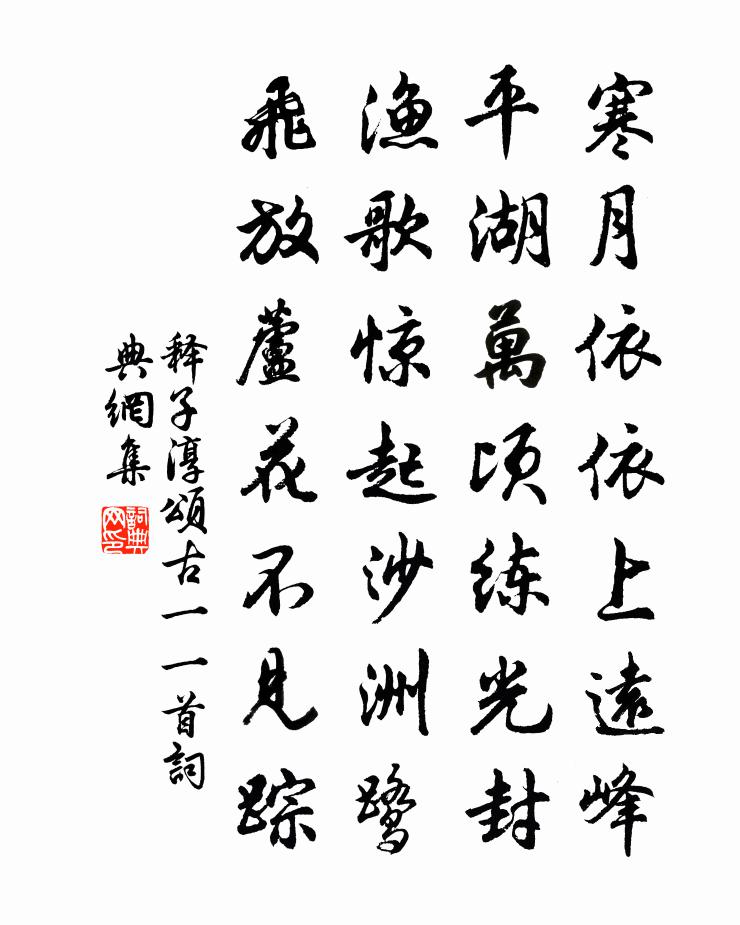 寒月依依上遠峰
平湖萬顷练光封
渔歌惊起沙洲鹭
飛放蘆花不見踪
释子淳頌古一一首詞
典網集
詞典
网印